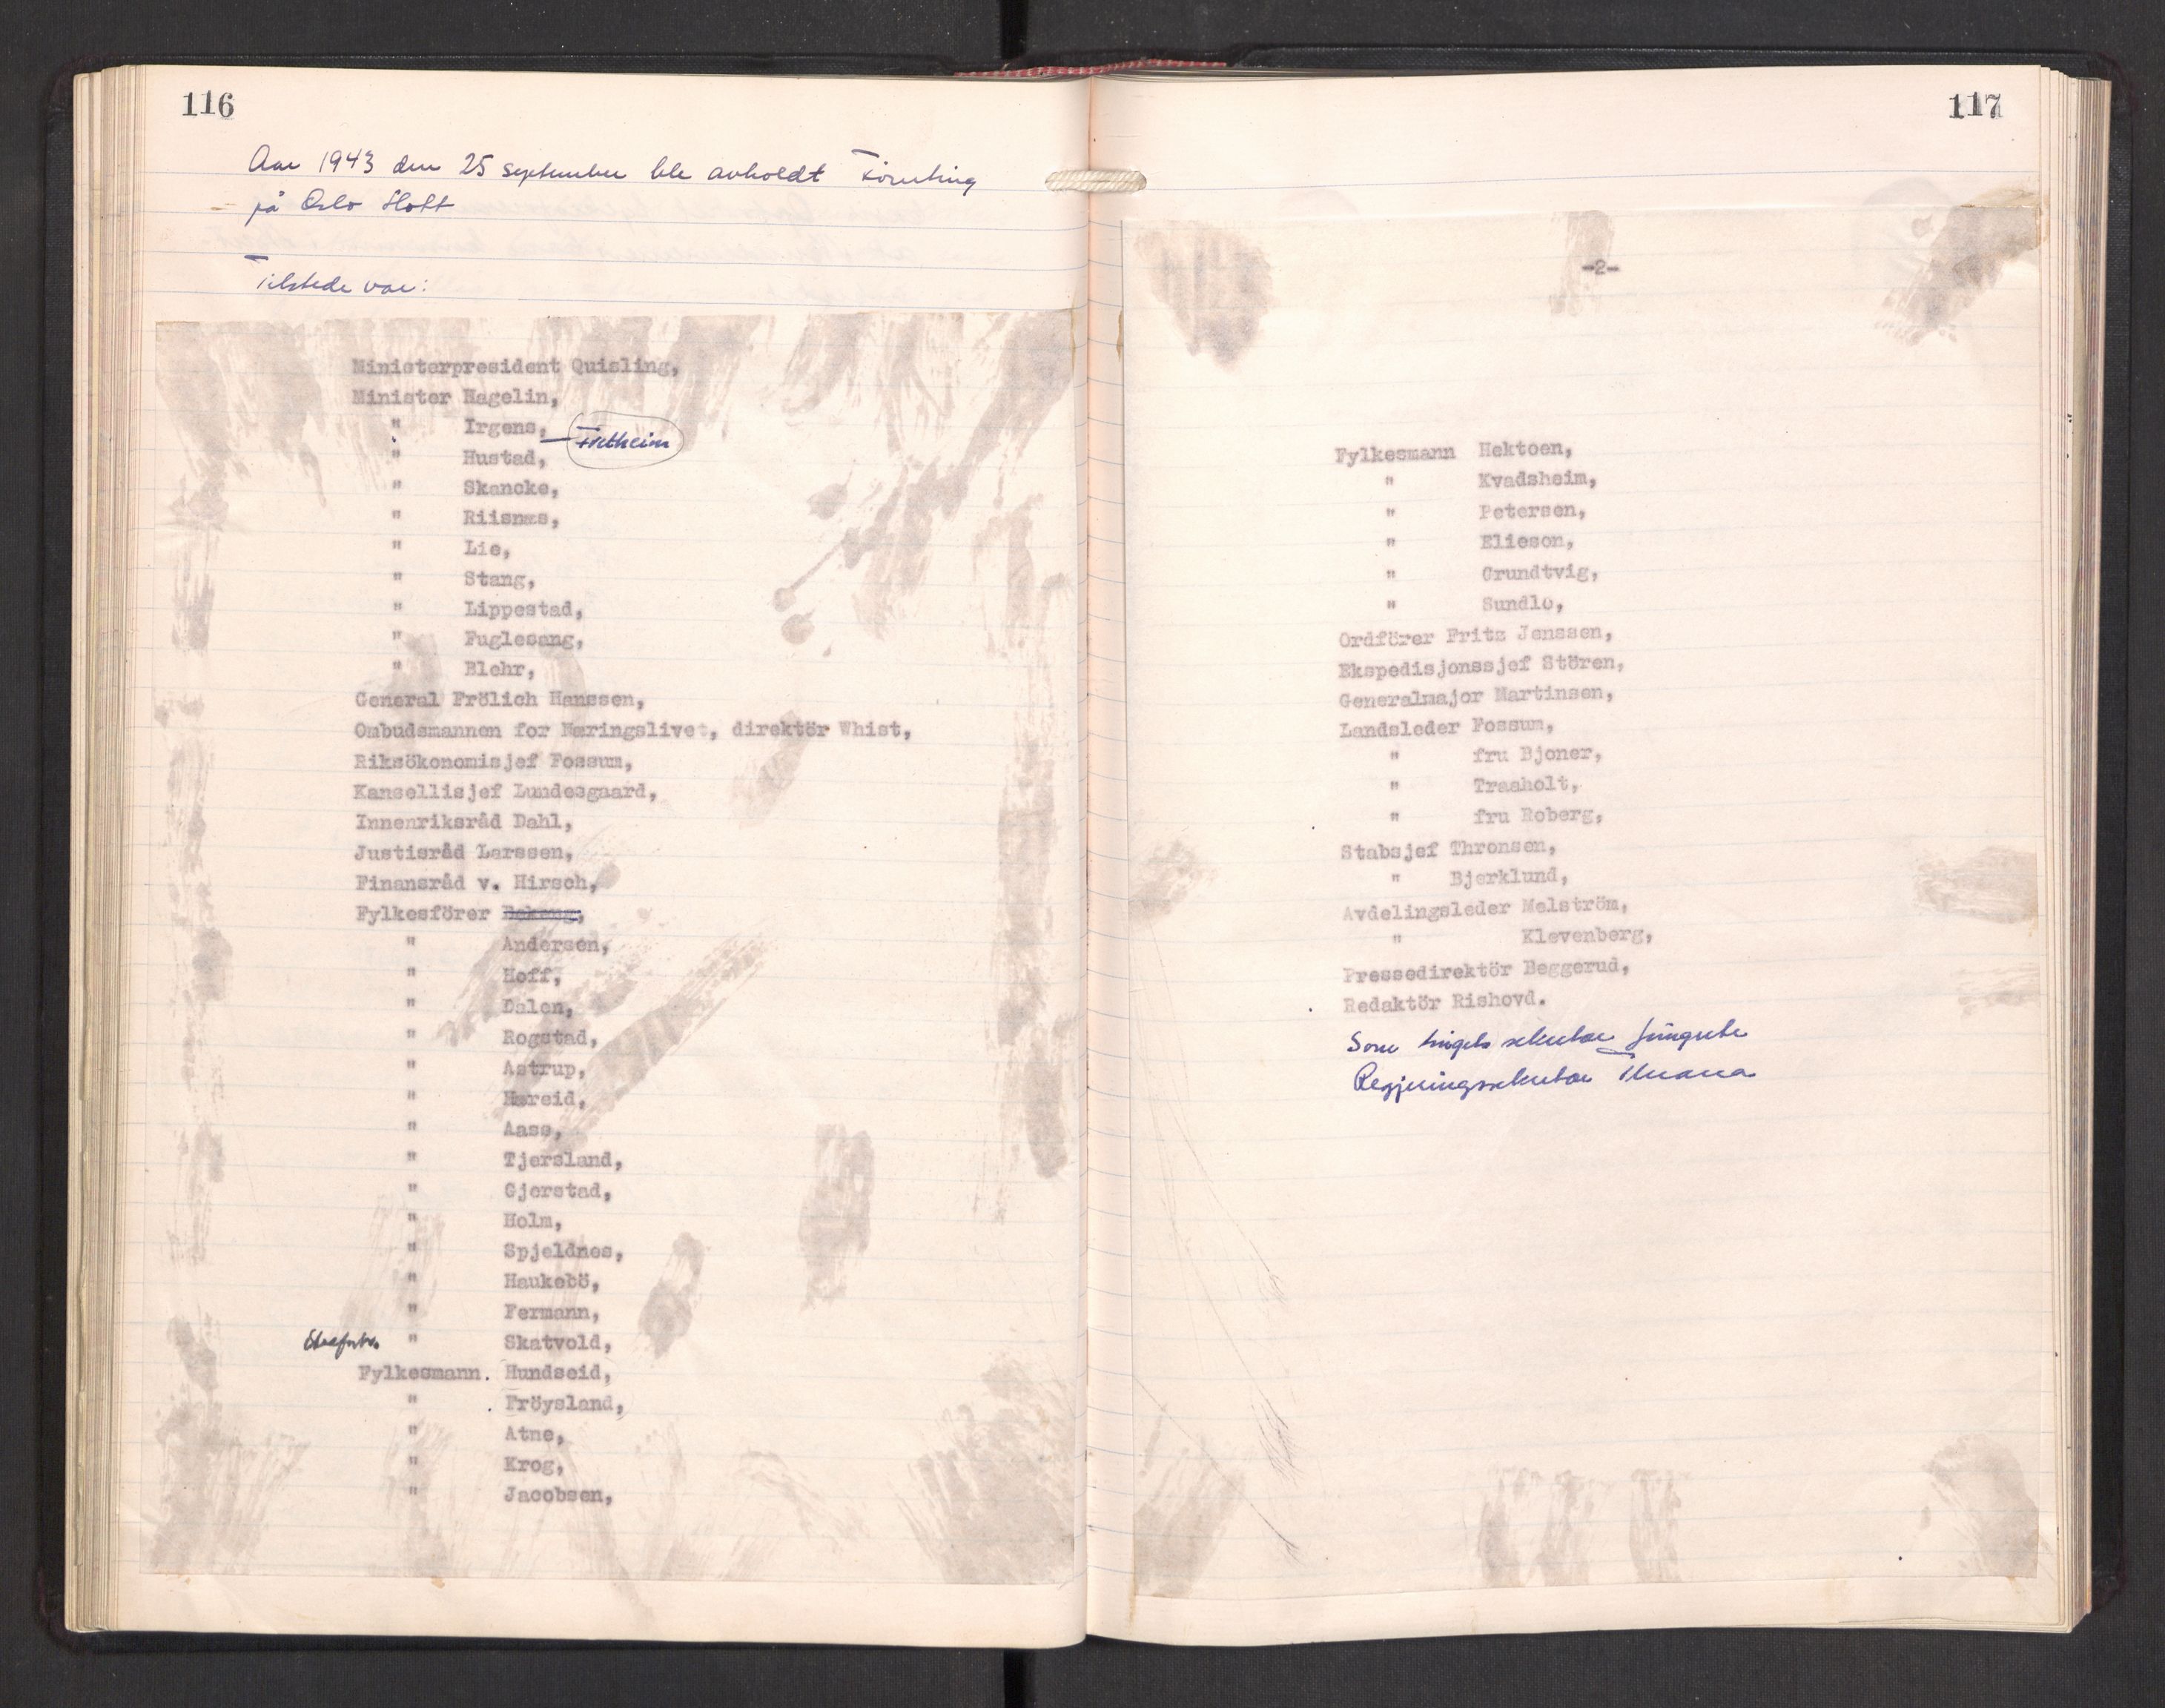 116
Aar 1943 den 25 september ble avholdt Førerting
på Oslo Slott
Tilstede var:
Ministerpresident Quisling,
Minister Hagelin,
" Irgens, — Fretheim
" Hustad,
" Skancke,
" Riisnæs,
" Lie,
" Stang,
" Lippestad,
" Fuglesang,
" Blehr,
General Frölich Hanssen,
Ombudsmannen for Næringslivet, direktör Whist,
Riksökonomisjef Fossum,
Kansellisjef Lundesgaard,
Innenriksråd Dahl,
Justisråd Larssen,
Finansråd v. Hirsch,
Fylkesförer
" Andersen,
" Hoff,
" Dalen,
" Rogstad,
" Astrup,
" Næreid,
" Aass,
" Tjersland,
" Gjerstad,
" Holm,
" Spjeldnes,
" Haukebö,
" Fermann,
" Skatvold,
Fylkesmann. Hundseid,
" Fröysland,
" Atne,
" Krog,
" Jacobsen,
117
-2-
Fylkesmann Hektoen,
" Kvadsheim,
" Petersen,
" Elieson,
" Grundtvig,
" Sundlo,
Ordförer Fritz Jenssen,
Ekspedisjonssjef Stören,
Generalmajor Martinsen,
Landsleder Fossum,
" fru Bjoner,
" Traaholt,
" fru Roberg,
Stabsjef Thronsen,
" Bjerklund,
Avdelingsleder Melström,
" Klevenberg,
Pressedirektör Beggerud,
Redaktör Rishovd.
Som tingets sekretær fungerte
Regjeringssekretær